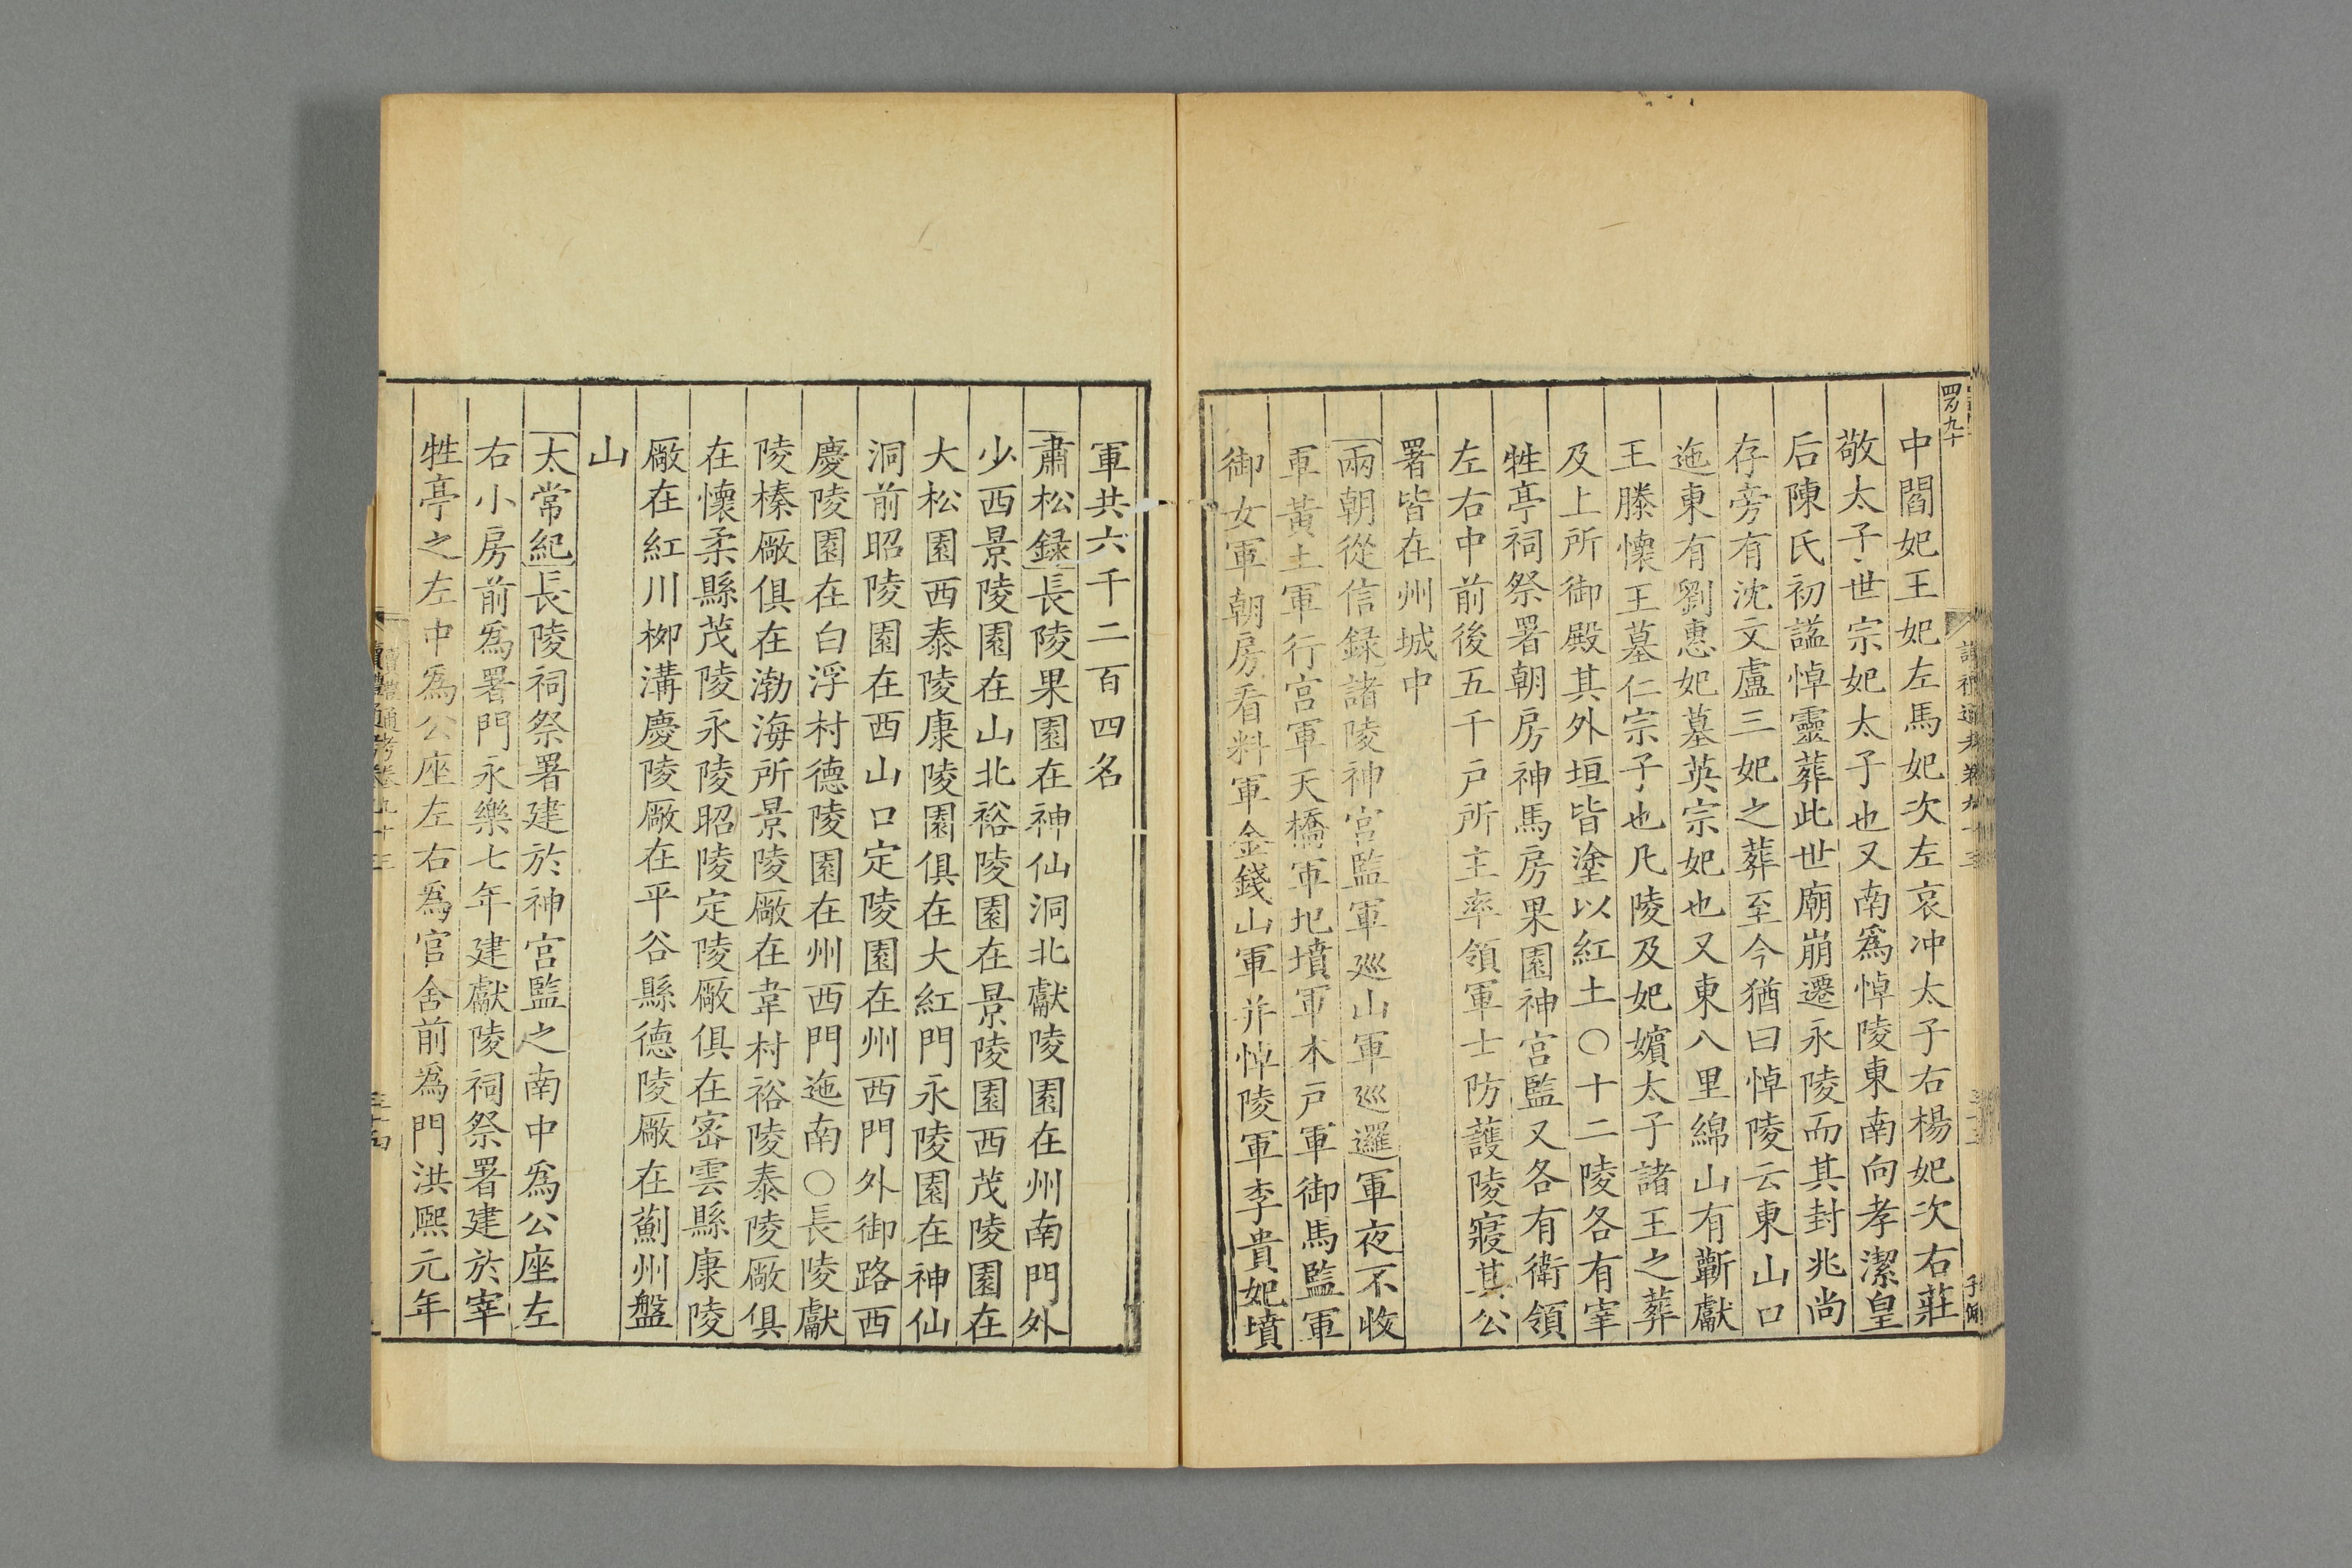 中閻妃王妃左馬妃次左哀冲太子右楊妃次右莊
敬太子世宗妃太子也又南爲悼陵東南向孝潔皇
后陳氏初諡悼靈葬此世廟崩遷永陵而其封兆尚
存旁有沈文盧三妃之葬至今猶曰悼陵云東山口
迤東有劉惠妃墓英宗妃也又東八里綿山有蘄獻
王滕懷王墓仁宗子也凡陵及妃嬪太子諸王之葬
及上所御殿其外垣皆塗以紅土○十二陵各有宰
牲亭祠祭署朝房神馬房果園神宮監又各有衛領
左右中前後五千戸所主率領軍士防護陵寢其公
署皆在州城中
兩朝從信録諸陵神宮監軍巡山軍巡邏軍夜不收
軍黃土軍行宮軍天橋軍圯墳軍本戸軍御馬監軍
御女軍朝房看料軍金錢山軍并悼陵軍李貴妃墳
軍共六千二百四名
肅松録長陵果園在神仙洞北獻陵園在州南門外
少西景陵園在山北裕陵園在景陵園西茂陵園在
大松園西泰陵康陵園俱在大紅門永陵園在神仙
洞前昭陵園在西山口定陵園在州西門外御路西
慶陵園在白浮村德陵園在州西門迤南○長陵獻
陵榛厰俱在渤海所景陵厰在韋村裕陵泰陵厰俱
在懷柔縣茂陵永陵昭陵定陵厰俱在密雲縣康陵
厰在紅川栁溝慶陵厰在平谷縣德陵厰在薊州盤
山
太常紀長陵祠祭署建於神宮監之南中爲公座左
右小房前爲署門永樂七年建獻陵祠祭署建於宰
牲亭之左中爲公座左右爲官舍前爲門洪熙元年